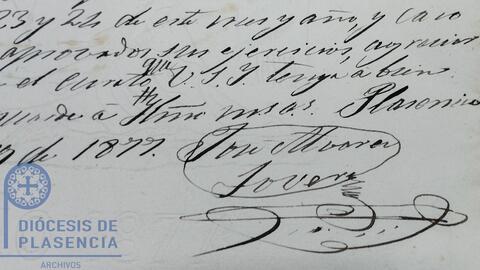 23 y 24 de este mes y año, y caso
aprovados sus ejercicios, agraciar
el Curato que V. S. I. tenga à bien
guarde à V. S. I. ms. as. Plasencia
de 1877. Jose Alvarez
Lovera
DIÓCESIS DE
PLASENCIA
ARCHIVOS